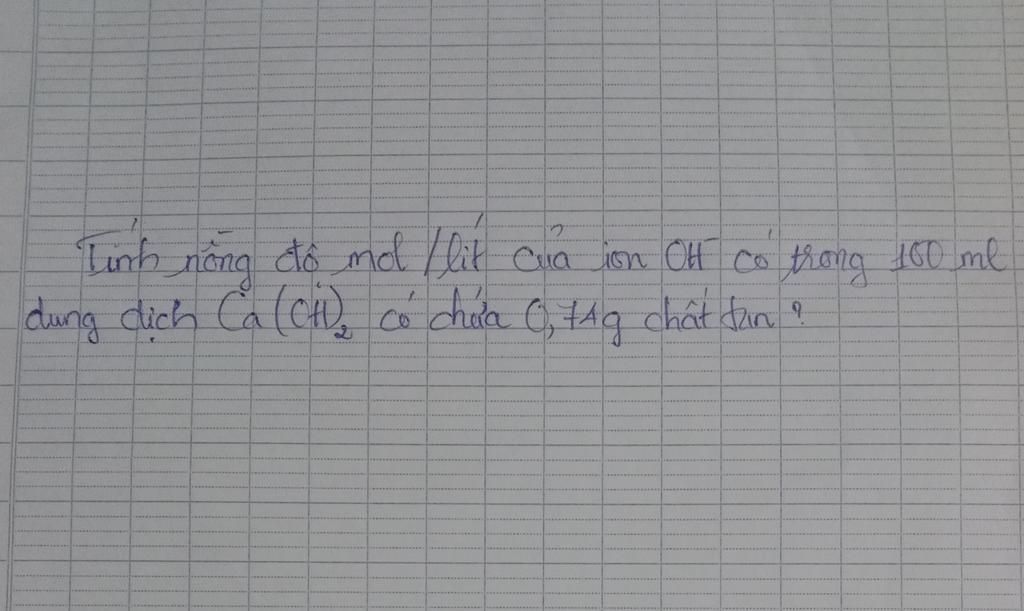 Tính nồng độ mol/lít của ion OH⁻ có trong 100 ml
dung dịch Ca(OH)₂ có chứa 0,74g chất tan?